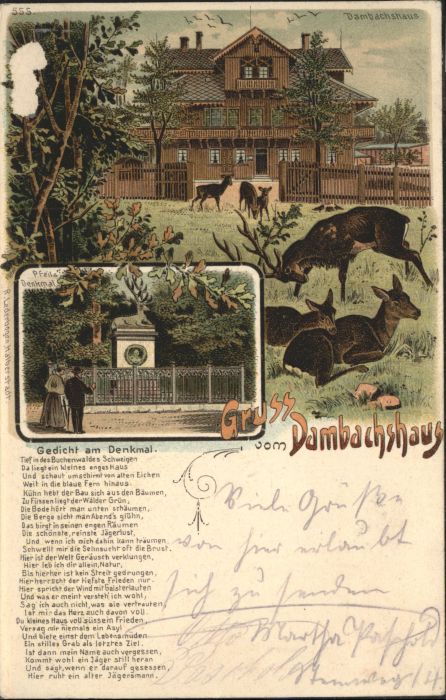 555.
Dambachshaus
Pfeils
Denkmal
Gruss
vom Dambachshaus
Gedicht am Denkmal.
Tief in des Buchenwaldes Schweigen
Da liegt ein kleines enges Haus
Und schaut umschirmt von alten Eichen
Weit in die blaue Fern hinaus.
Kühn hebt der Bau sich aus den Bäumen,
Zu Füssen liegt der Wälder Grün,
Die Bode hört man unten schäumen,
Die Berge sieht man Abends glühn,
Das birgt in seinen engen Räumen
Die schönste, reinste Jägerlust,
Und wenn ich mich dahin kann träumen
Schwellt mir die Sehnsucht oft die Brust.
Hier ist der Welt Geräusch verklungen,
Hier leb ich dir allein, Natur,
Bis hierher ist kein Streit gedrungen,
Hier herrscht der tiefste Frieden nur.
Hier spricht der Wind mit Geisterlauten
Und was er meint versteh ich wohl,
Sag ich auch nicht, was sie vertrauten,
Ist mir das Herz auch davon voll.
Du kleines Haus voll süssem Frieden
Versag mir niemals ein Asyl
Und biete einst dem Lebensmüden
Ein stilles Grab als letztres Ziel.
Ist dann mein Name auch vergessen,
Kommt wohl ein Jäger still heran
Und sagt, wenn er darauf gesessen,
Hier ruht ein alter Jägersmann.
Viele Grüße
von hier erlaubt
sich zu senden
Martha